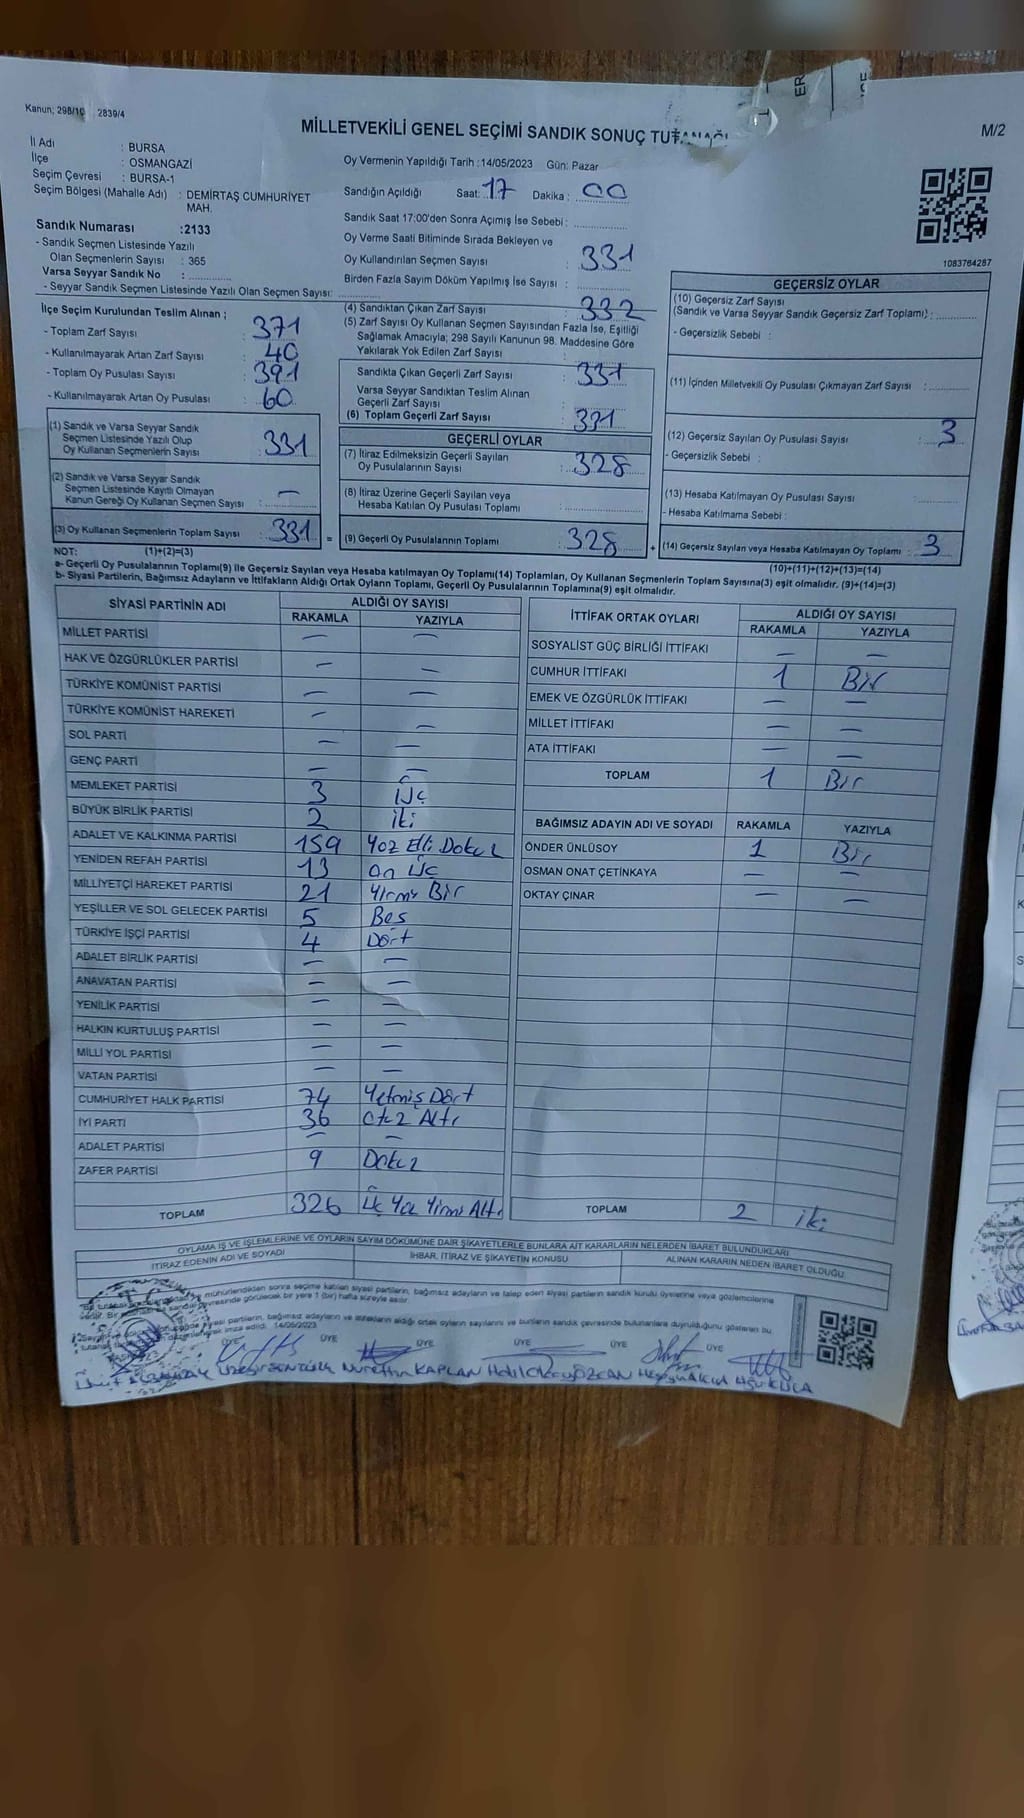 Kanun; 298/10 2839/4
MİLLETVEKİLİ GENEL SEÇİMİ SANDIK SONUÇ TUTANAĞI
M/2
İl Adı : BURSA
İlçe : OSMANGAZİ
Seçim Çevresi : BURSA-1
Seçim Bölgesi (Mahalle Adı) : DEMİRTAŞ CUMHURİYET
MAH.
Sandık Numarası :2133
- Sandık Seçmen Listesinde Yazılı
Olan Seçmenlerin Sayısı : 365
Varsa Seyyar Sandık No :
- Seyyar Sandık Seçmen Listesinde Yazılı Olan Seçmen Sayısı:
Oy Vermenin Yapıldığı Tarih :14/05/2023 Gün: Pazar
Sandığın Açıldığı Saat: 17 Dakika : 00
Sandık Saat 17:00'den Sonra Açımış İse Sebebi :
Oy Verme Saati Bitiminde Sırada Bekleyen ve
Oy Kullandırılan Seçmen Sayısı : 331
Birden Fazla Sayım Döküm Yapılmış İse Sayısı :
1083764287
İlçe Seçim Kurulundan Teslim Alınan ;
- Toplam Zarf Sayısı : 371
- Kullanılmayarak Artan Zarf Sayısı : 40
- Toplam Oy Pusulası Sayısı : 391
- Kullanılmayarak Artan Oy Pusulası : 60
(1) Sandık ve Varsa Seyyar Sandık
Seçmen Listesinde Yazılı Olup
Oy Kullanan Seçmenlerin Sayısı : 331
(2) Sandık ve Varsa Seyyar Sandık
Seçmen Listesinde Kayıtlı Olmayan
Kanun Gereği Oy Kullanan Seçmen Sayısı : —
(3) Oy Kullanan Seçmenlerin Toplam Sayısı : 331 =
(4) Sandıktan Çıkan Zarf Sayısı : 332
(5) Zarf Sayısı Oy Kullanan Seçmen Sayısından Fazla İse, Eşitliği
Sağlamak Amacıyla; 298 Sayılı Kanunun 98. Maddesine Göre
Yakılarak Yok Edilen Zarf Sayısı :
Sandıkta Çıkan Geçerli Zarf Sayısı : 331
Varsa Seyyar Sandıktan Teslim Alınan
Geçerli Zarf Sayısı :
(6) Toplam Geçerli Zarf Sayısı : 331
GEÇERLİ OYLAR
(7) İtiraz Edilmeksizin Geçerli Sayılan
Oy Pusulalarının Sayısı : 328
(8) İtiraz Üzerine Geçerli Sayılan veya
Hesaba Katılan Oy Pusulası Toplamı :
(9) Geçerli Oy Pusulalarının Toplamı : 328 +
GEÇERSİZ OYLAR
(10) Geçersiz Zarf Sayısı
(Sandık ve Varsa Seyyar Sandık Geçersiz Zarf Toplamı) :
- Geçersizlik Sebebi :
(11) İçinden Milletvekili Oy Pusulası Çıkmayan Zarf Sayısı :
(12) Geçersiz Sayılan Oy Pusulası Sayısı : 3
- Geçersizlik Sebebi :
(13) Hesaba Katılmayan Oy Pusulası Sayısı :
- Hesaba Katılmama Sebebi :
(14) Geçersiz Sayılan veya Hesaba Katılmayan Oy Toplamı : 3
NOT: (1)+(2)=(3)
(10)+(11)+(12)+(13)=(14)
a- Geçerli Oy Pusulalarının Toplamı(9) ile Geçersiz Sayılan veya Hesaba katılmayan Oy Toplamı(14) Toplamları, Oy Kullanan Seçmenlerin Toplam Sayısına(3) eşit olmalıdır. (9)+(14)=(3)
b- Siyasi Partilerin, Bağımsız Adayların ve İttifakların Aldığı Ortak Oyların Toplamı, Geçerli Oy Pusulalarının Toplamına(9) eşit olmalıdır.
SİYASİ PARTİNİN ADI ALDIĞI OY SAYISI
RAKAMLA YAZIYLA
MİLLET PARTİSİ — —
HAK VE ÖZGÜRLÜKLER PARTİSİ — —
TÜRKİYE KOMÜNİST PARTİSİ — —
TÜRKİYE KOMÜNİST HAREKETİ —
SOL PARTİ — —
GENÇ PARTİ — —
MEMLEKET PARTİSİ 3 Üç
BÜYÜK BİRLİK PARTİSİ 2 iki
ADALET VE KALKINMA PARTİSİ 159 Yüz Elli Dokuz
YENİDEN REFAH PARTİSİ 13 On Üç
MİLLİYETÇİ HAREKET PARTİSİ 21 Yirmi Bir
YEŞİLLER VE SOL GELECEK PARTİSİ 5 Beş
TÜRKİYE İŞÇİ PARTİSİ 4 Dört
ADALET BİRLİK PARTİSİ — —
ANAVATAN PARTİSİ — —
YENİLİK PARTİSİ — —
HALKIN KURTULUŞ PARTİSİ — —
MİLLİ YOL PARTİSİ — —
VATAN PARTİSİ — —
CUMHURİYET HALK PARTİSİ 74 Yetmiş Dört
İYİ PARTİ 36 Otuz Altı
ADALET PARTİSİ — —
ZAFER PARTİSİ 9 Dokuz
TOPLAM 326 Üç Yüz Yirmi Altı
İTTİFAK ORTAK OYLARI ALDIĞI OY SAYISI
RAKAMLA YAZIYLA
SOSYALİST GÜÇ BİRLİĞİ İTTİFAKI — —
CUMHUR İTTİFAKI 1 Bir
EMEK VE ÖZGÜRLÜK İTTİFAKI — —
MİLLET İTTİFAKI — —
ATA İTTİFAKI — —
TOPLAM 1 Bir
BAĞIMSIZ ADAYIN ADI VE SOYADI RAKAMLA YAZIYLA
ÖNDER ÜNLÜSOY 1 Bir
OSMAN ONAT ÇETİNKAYA — —
OKTAY ÇINAR — —
TOPLAM 2 iki
OYLAMA İŞ VE İŞLEMLERİNE VE OYLARIN SAYIM DÖKÜMÜNE DAİR ŞİKAYETLERLE BUNLARA AİT KARARLARIN NELERDEN İBARET BULUNDUKLARI
İTİRAZ EDENİN ADI VE SOYADI İHBAR, İTİRAZ VE ŞİKAYETİN KONUSU ALINAN KARARIN NEDEN İBARET OLDUĞU
mühürlendikten sonra seçime katılan siyasi partilerin, bağımsız adayların ve talep eden siyasi partilerin sandık kurulu üyelerine veya gözlemcilerine
çevresinde görülecek bir yere 1 (bir) hafta süreyle asılır.
siyasi partilerin, bağımsız adayların ve ittifakların aldığı ortak oyların sayılarını ve bunların sandık çevresinde bulunanlara duyrulduğunu gösteren bu
imza edildi. 14/05/2023
ÜYE ÜYE ÜYE ÜYE ÜYE ÜYE
Nurettin KAPLAN